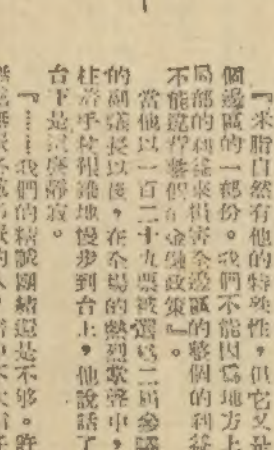 『米脂自然有他的特殊性，但它又是
個邊區的一部份。我們不能因爲地方上
局部的利益來損害全邊區的整個的利益
不能違背整個的金融政策』。
當他以一百二十九票被選爲二屆參議
的副議長以後，在全場的熱烈歡聲中，
柱着手杖很謙地慢步到台上，他說話了
台下是
寂。
『……我們的精誠團結還是不够。許